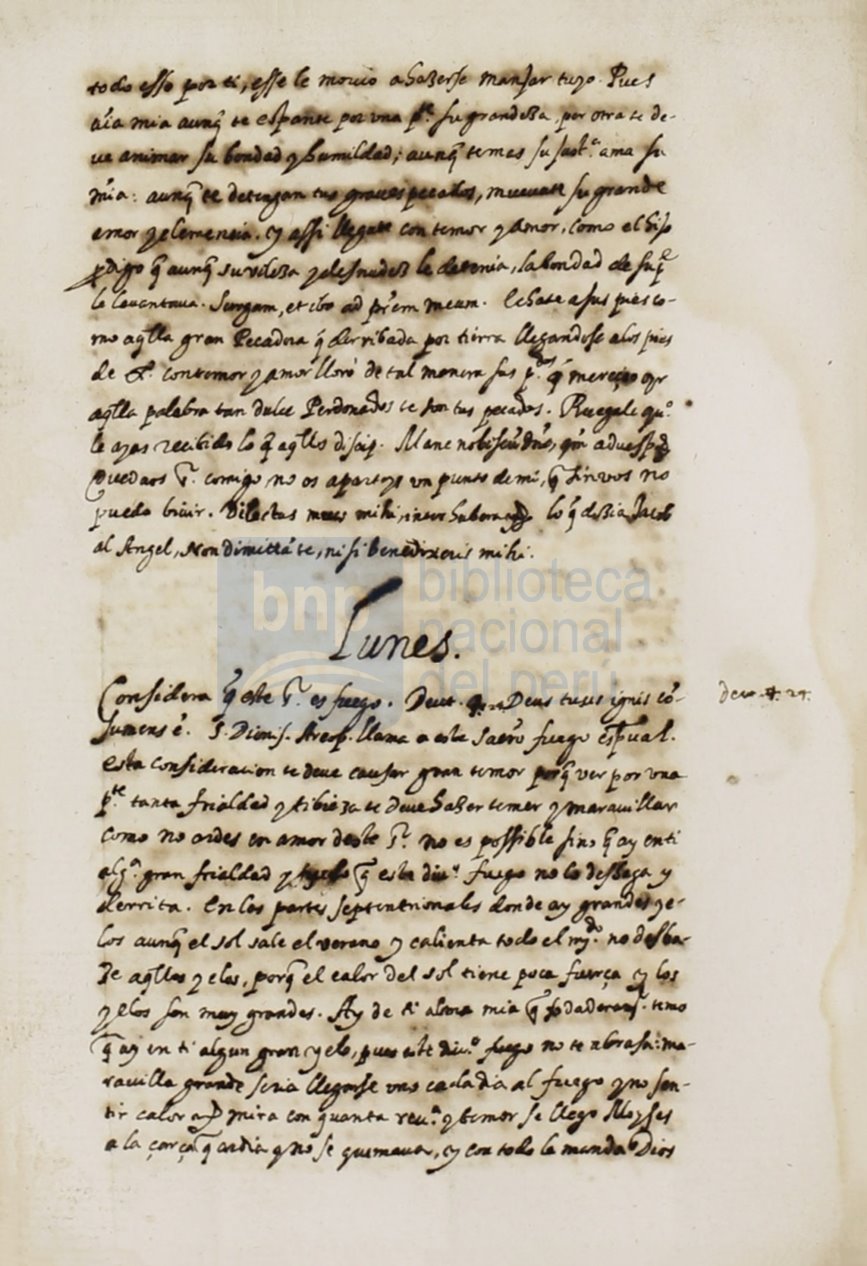 todo esso por ti, esse le movio a hazerse manjar tuyo. Pues
aĩa mia aunq̃ te espante por una pte. su grandeza, por otra te de-
ve animar su bondad y humildad; aunq̃ temas su just.ª ama su
mĩa: aunq̃ te detengan tus graves pecados, muevate su grande
amor y clemencia. y assi llegate con temor y amor, como el hijo
pdigo q̃ aunq̃ su vileza y desnudez le detenia, la bondad de su p.e
le levantava. Surgam, et ibo ad prẽm meum. Echate a sus pies co-
mo aq̃lla gran Pecadora q̃ derribada por tierra llegandose a los pies
de con temor y amor lloró de tal manera sus p.dos q̃ merecio oyr
aq̃lla palabra tan dulce Perdonados te son tus pecados. Ruegale qu.º
le ayas recibido lo q̃ aq̃llos discip. Mane nobiscũ dñe, qm̃ advesp
Quedaos S.r comigo no os aparteys un punto de mi, q̃ sin vos no
puedo bivir. Dilectus meus mihi, inter ubera lo q̃ dezia Jacob
al Angel, Non dimittã te, nisi benedixeris mihi.
Lunes.
Considera q̃ este S.r es fuego. Deut. 4. Deus tuus ignis cõ-
sumens ẽ. S. Dionis. Areop. llama a este Sacrõ fuego espũal.
esta consideracion te deve causar gran temor porq̃ ver por una
pte tanta frialdad y tibieza te deve hazer temer y maravillar
como no ardes en amor deste S.r no es possible sino q̃ ay en ti
alg.ª gran frialdad y yelo q̃ este div.º fuego no lo deshaga y
derrita. En las partes septentrionales donde ay grandes ye-
los aunq̃ el sol sale el verano y calienta todo el m.do no desha-
ze aq̃llos yelos, porq̃ el calor del sol tiene poca fuerça y los
yelos son muy grandes. Ay de ti alma mia q̃ temo
q̃ ay en ti algun gran yelo, pues este div.º fuego no te abrasa: ma-
ravilla grande seria llegarse uno cada dia al fuego y no sen-
tir calor mira con quanta rev.ª y temor se llego Moyses
a la çarça q̃ ardia y no se quemava, y con todo le manda Dios
Deut. 4. 24.
bnp biblioteca
nacional
del perú